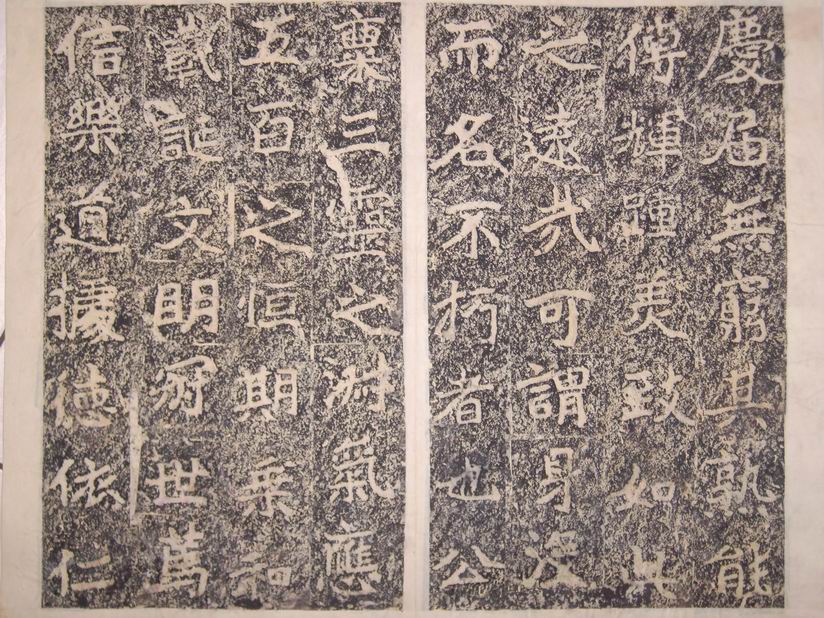 慶届無窮其孰能
傳輝踵美致如此
之遠哉可謂身沒
而名不朽者也公
稟三靈之淑氣應
五百之恒期乘和
載誕文明冠世篤
信樂道據德依仁